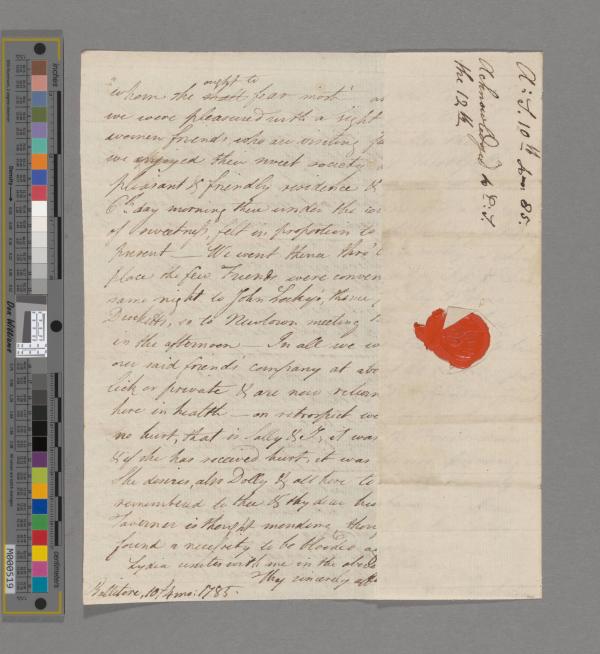 ought to
whom she shall fear most
we were pleasured with a sight
women friends who are visiting
we enjoyed their sweet society
pleasant & friendly residence &
6th day morning then under the
of sweetness, felt in proportion to
present — We went thence thro'
place the few Friends were conven
same night to John thence
so to Newtown meeting
in the afternoon — In all we
our said friends company at
lick or private & are now return
here in health — on retrospect we
no hurt, that is Sally & I, it was
& if she has received hurt, it was
She desires, also Dolly & all here to
remembered to thee & thy dear
Taverner is thought mending, tho
found a necessity to be blooded
Lydia unites with me in the above
Thy sincerely
10/4mo: 1785.
A: S. 10th 85.
Acknowledged to S.
the 12th
inches
centimeters
Don Williams
M000519